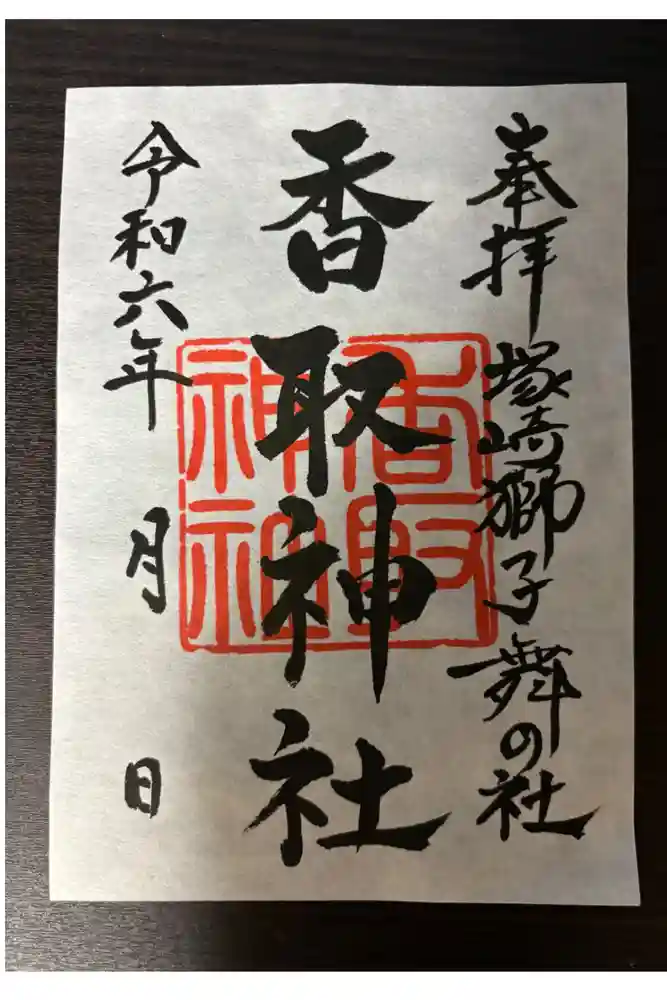 奉拝 塚崎獅子舞の社
香取神社
令和六年 月 日
香取
神社